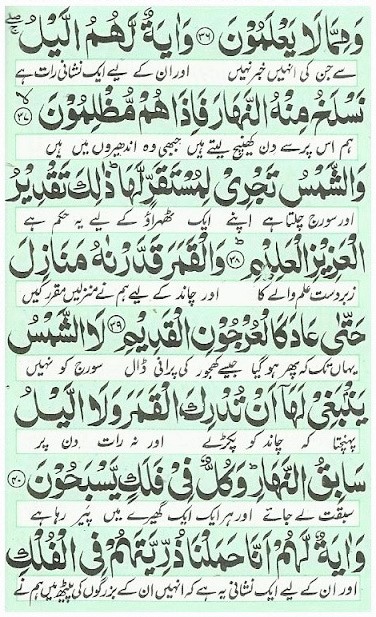 وَمِمَّا لَا يَعْلَمُوْنَ ﴿۳۶﴾ وَاٰيَةٌ لَّهُمُ الَّيْلُ
سے جن کی انہیں خبر نہیں اور ان کے لیے ایک نشانی رات ہے
نَسْلَخُ مِنْهُ النَّهَارَ فَاِذَا هُمْ مُّظْلِمُوْنَ ﴿۳۷﴾
ہم اس پر سے دن کھینچ لیتے ہیں جبھی وہ اندھیروں میں ہیں
وَالشَّمْسُ تَجْرِىْ لِمُسْتَقَرٍّ لَّهَا ؕ ذٰلِكَ تَقْدِيْرُ
اور سورج چلتا ہے اپنے ایک ٹھہراؤ کے لیے یہ حکم ہے
الْعَزِيْزِ الْعَلِيْمِ ؕ ﴿۳۸﴾ وَالْقَمَرَ قَدَّرْنٰهُ مَنَازِلَ
زبردست علم والے کا اور چاند کے لیے ہم نے منزلیں مقرر کیں
حَتّٰى عَادَ كَالْعُرْجُوْنِ الْقَدِيْمِ ﴿۳۹﴾ لَا الشَّمْسُ
یہاں تک کہ پھر ہو گیا جیسے کھجور کی پرانی ڈال سورج کو نہیں
يَنْۢبَغِىْ لَهَاۤ اَنْ تُدْرِكَ الْقَمَرَ وَلَا الَّيْلُ
پہنچتا کہ چاند کو پکڑے اور نہ رات دن پر
سَابِقُ النَّهَارِ ؕ وَكُلٌّ فِىْ فَلَكٍ يَّسْبَحُوْنَ ﴿۴۰﴾
سبقت لے جائے اور ہر ایک ایک گھیرے میں پیر رہا ہے
وَاٰيَةٌ لَّهُمْ اَنَّا حَمَلْنَا ذُرِّيَّتَهُمْ فِى الْفُلْكِ
اور ان کے لیے ایک نشانی یہ ہے کہ انہیں ان کے بزرگوں کی پیٹھ میں ہم نے